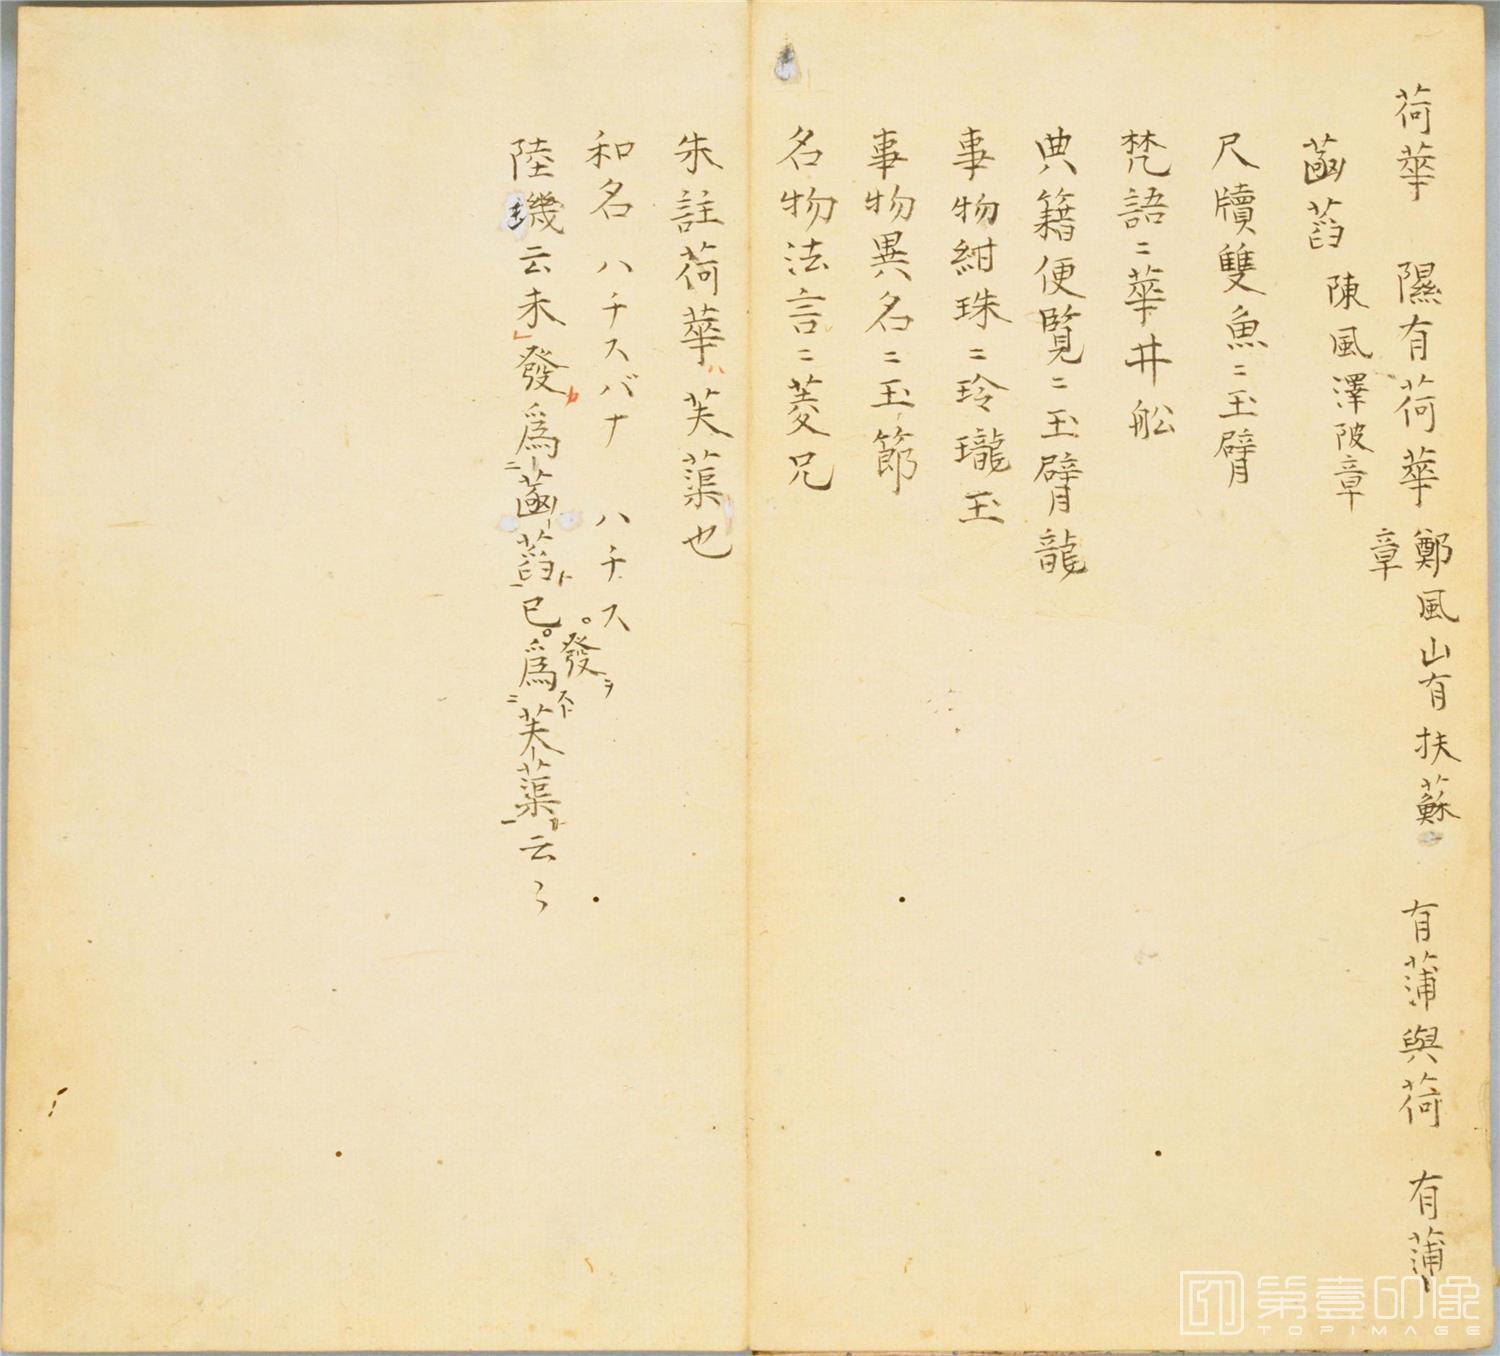 荷華 隰有荷華 鄭風山有扶蘇章 有蒲與荷 有蒲
菡萏 陳風澤陂章
尺牘雙魚ニ玉臂
梵語ニ華井舩
典籍便覽ニ玉臂龍
事物紺珠ニ玲瓏玉
事物異名ニ玉節
名物法言ニ菱兄
朱註荷華ハ芙蕖也
和名 ハチスバナ ハチス
陸璣云未發爲菡萏已發爲芙蕖云々
第壹印像
TOPIMAGE